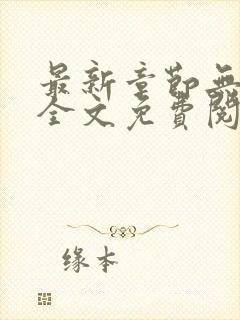 最新章節無
全文免費閱
缘本